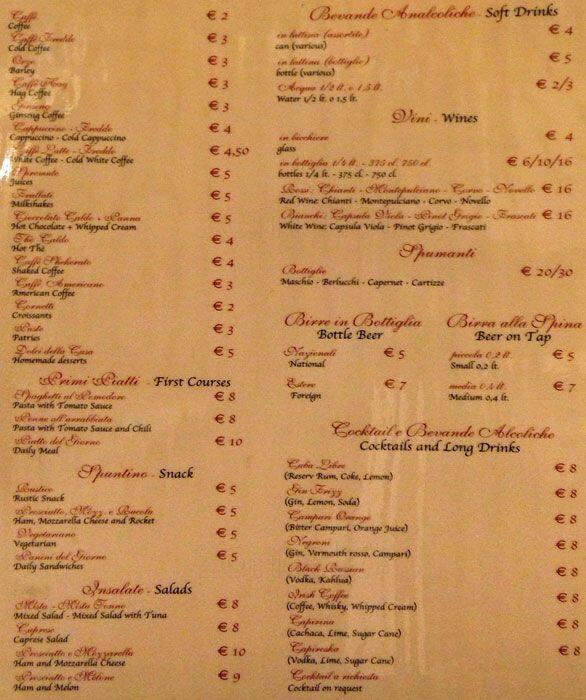 Caffè € 2
Coffee
Caffè Freddo € 3
Cold Coffee
Orzo € 3
Barley
Caffè Hag € 3
Hag Coffee
Ginseng € 3
Ginseng Coffee
Cappuccino - Freddo € 4
Cappuccino - Cold Cappuccino
Caffè Latte - Freddo € 4,50
White Coffee - Cold White Coffee
Spremute € 5
Juices
Frullati € 5
Milkshakes
Cioccolate Calde + Panna € 5
Hot Chocolate + Whipped Cream
Thè Caldo € 4
Hot The
Caffè Shekerato € 4
Shaked Coffee
Caffè Americano € 3
American Coffee
Cornetti € 2
Croissants
Paste € 3
Patries
Dolci della Casa € 5
Homemade desserts
Primi Piatti - First Courses
Spaghetti al Pomodoro € 8
Pasta with Tomato Sauce
Penne all'arrabbiata € 8
Pasta with Tomato Sauce and Chili
Piatto del Giorno € 10
Daily Meal
Spuntino - Snack
Rustico € 5
Rustic Snack
Prosciutto, Mozz. e Rucola € 5
Ham, Mozzarella Cheese and Rocket
Vegetariano € 5
Vegetarian
Panini del Giorno € 5
Daily Sandwiches
Insalate - Salads
Mista - Mista Tonno € 8
Mixed Salad - Mixed Salad with Tuna
Caprese € 8
Caprese Salad
Prosciutto e Mozzarella € 10
Ham and Mozzarella Cheese
Prosciutto e Melone € 9
Ham and Melon
Bevande Analcoliche - Soft Drinks
in lattina (assortite) € 4
can (various)
in lattina (bottiglie) € 5
bottle (various)
Acqua 1/2 lt. o 1,5 lt. € 2/3
Water 1/2 lt. o 1,5 lt.
Vini - Wines
in bicchiere € 4
glass
in bottiglia 1/4 lt. - 375 cl. 750 cl. € 6/10/16
bottles 1/4 lt. - 375 cl. - 750 cl.
Rossi: Chianti - Montepulciano - Corvo - Novello € 16
Red Wine: Chianti - Montepulciano - Corvo - Novello
Bianchi: Capsula Viola - Pinot Grigio - Frascati € 16
White Wine: Capsula Viola - Pinot Grigio - Frascati
Spumanti
Bottiglie € 20/30
Maschio - Berlucchi - Capernet - Cartizze
Birre in Bottiglia
Bottle Beer
Nazionali € 5
National
Estere € 7
Foreign
Birra alla Spina
Beer on Tap
piccola 0,2 lt. € 5
Small 0,2 lt.
media 0,4 lt. € 7
Medium 0,4 lt.
Cocktail e Bevande Alcoliche
Cocktails and Long Drinks
Cuba Libre € 8
(Reserv Rum, Coke, Lemon)
Gin Frizz € 8
(Gin, Lemon, Soda)
Campari Orange € 8
(Bitter Campari, Orange Juice)
Negroni € 8
(Gin, Vermouth rosso, Campari)
Black Russian € 8
(Vodka, Kahlua)
Irish Coffee € 8
(Coffee, Whisky, Whipped Cream)
Capirina € 8
(Cachaca, Lime, Sugar Cane)
Capiroska € 8
(Vodka, Lime, Sugar Cane)
Cocktail a richiesta
Cocktail on request